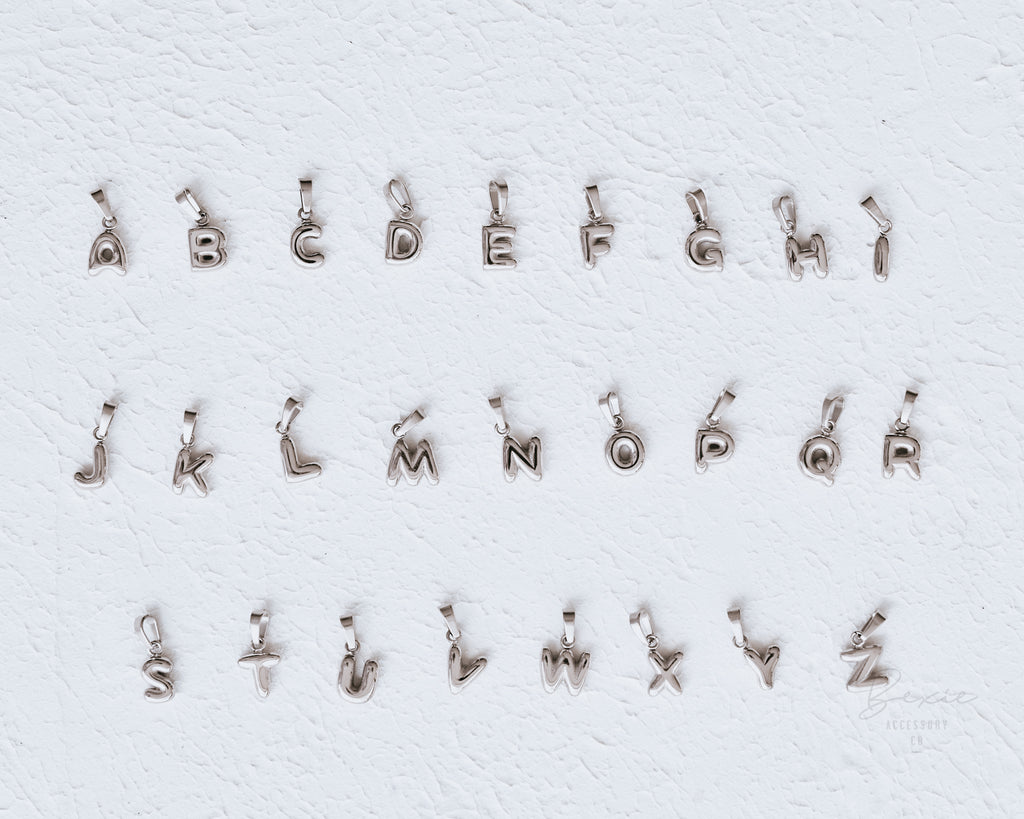 A B C D E F G H I
J K L M N O P Q R
S T U V W X Y Z
Bexie
ACCESSORY
CO